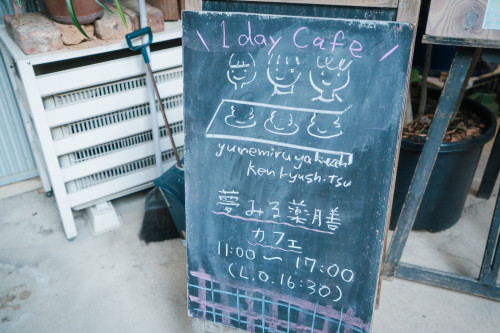 1day Cafe
yumemiruyakuzen
Kenkyushitsu
夢みる薬膳
カフェ
11:00～17:00
(L.O.16:30)